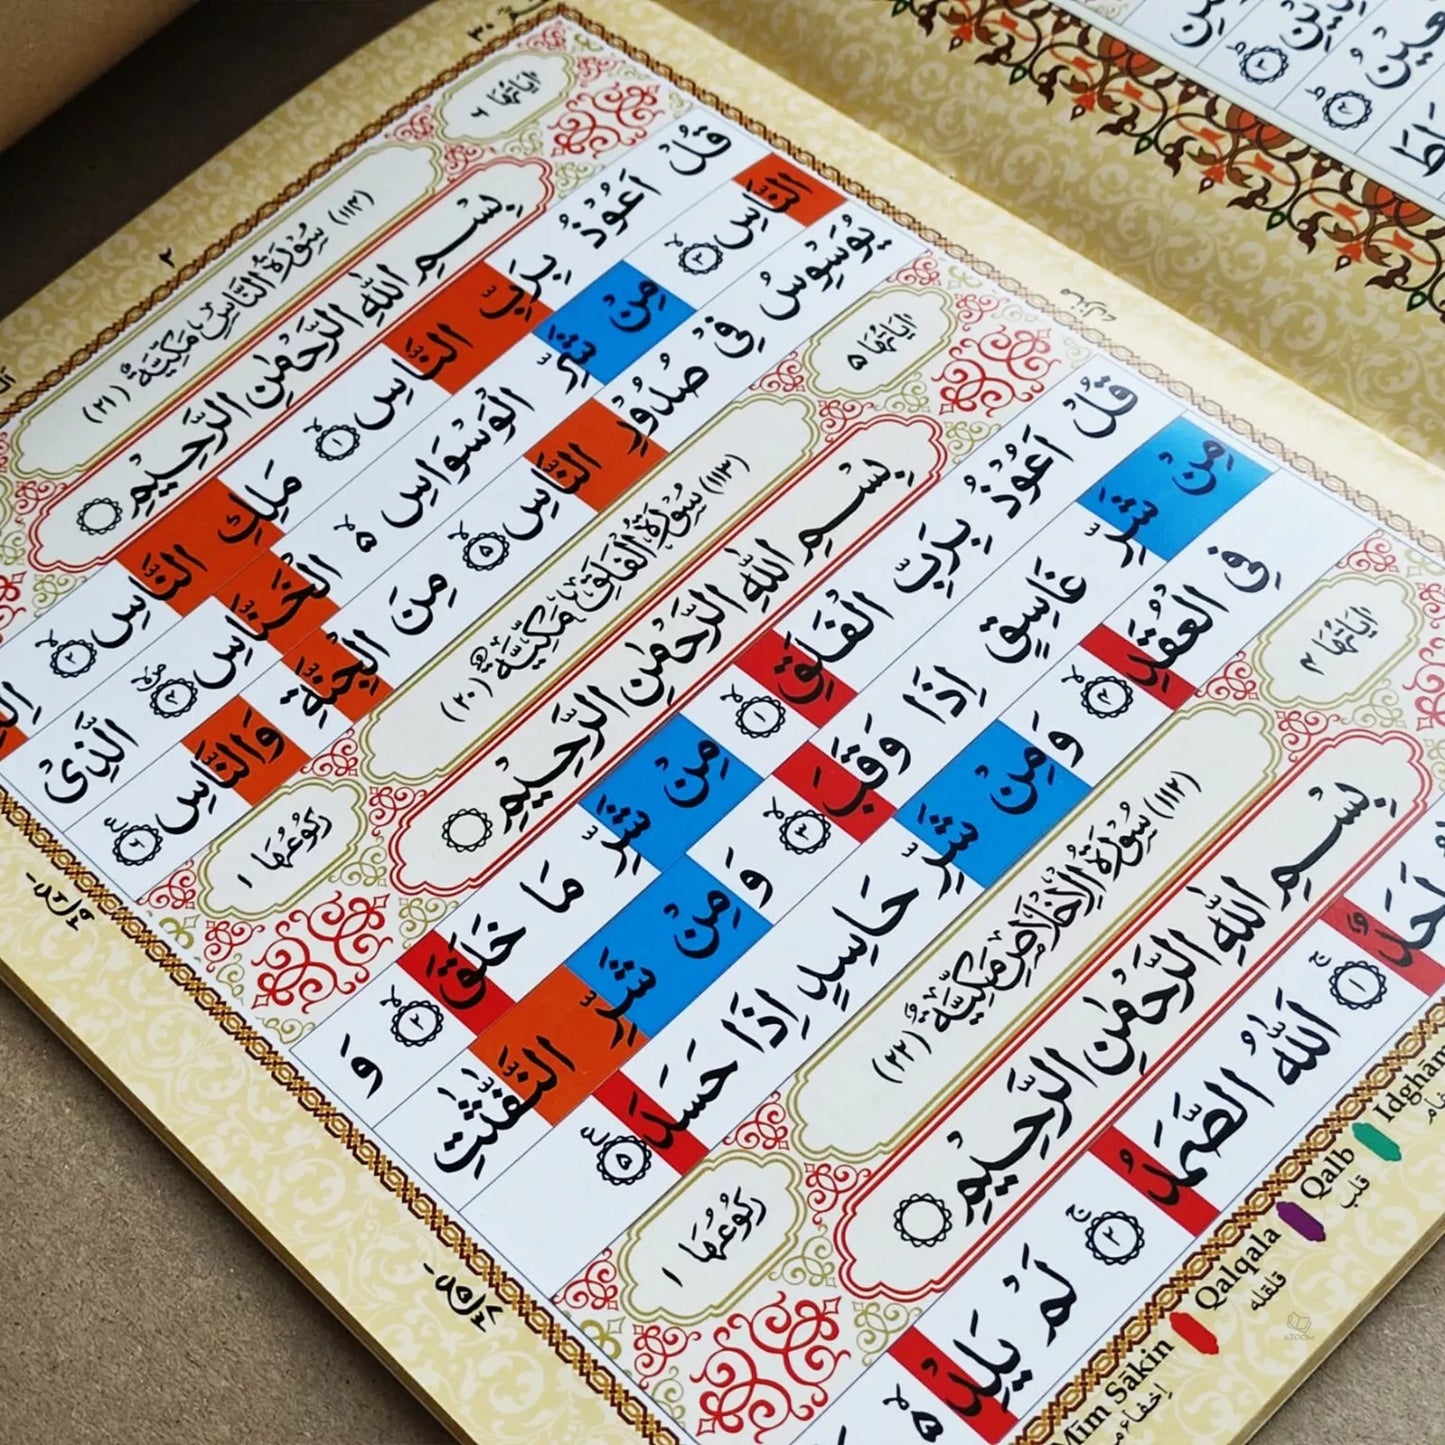 اٰيَاتُهَا ٦
(١١٤) سُوْرَةُ النَّاسِ مَكِّيَّةٌ (٢١)
بِسْمِ اللّٰهِ الرَّحْمٰنِ الرَّحِيْمِ
قُلْ اَعُوْذُ بِرَبِّ النَّاسِ ۙ﴿١﴾ مَلِكِ النَّاسِ ۙ﴿٢﴾
النَّاسِ ۙ﴿٣﴾ مِنْ شَرِّ الْوَسْوَاسِ ۙ۬ الْخَنَّاسِ ﴿٤﴾ الَّذِىْ
يُوَسْوِسُ فِىْ صُدُوْرِ النَّاسِ ۙ﴿٥﴾ مِنَ الْجِنَّةِ وَالنَّاسِ ﴿٦﴾
اٰيَاتُهَا ٥
(١١٣) سُوْرَةُ الْفَلَقِ مَكِّيَّةٌ (٢٠)
رُكُوْعُهَا ١
بِسْمِ اللّٰهِ الرَّحْمٰنِ الرَّحِيْمِ
قُلْ اَعُوْذُ بِرَبِّ الْفَلَقِ ۙ﴿١﴾ مِنْ شَرِّ مَا خَلَقَ ۙ﴿٢﴾ وَ
مِنْ شَرِّ غَاسِقٍ اِذَا وَقَبَ ۙ﴿٣﴾ وَ مِنْ شَرِّ النَّفّٰثٰتِ
فِى الْعُقَدِ ۙ﴿٤﴾ وَمِنْ شَرِّ حَاسِدٍ اِذَا حَسَدَ ﴿٥﴾
اٰيَاتُهَا ٤
(١١٢) سُوْرَةُ الْاِخْلَاصِ مَكِّيَّةٌ (٢٢)
رُكُوْعُهَا ١
بِسْمِ اللّٰهِ الرَّحْمٰنِ الرَّحِيْمِ
اَحَدٌ ۚ﴿١﴾ اَللّٰهُ الصَّمَدُ ۚ﴿٢﴾ لَمْ يَلِدْ
Idghām
Qalb
قلب
Qalqala
قلقله
Mīm Sākin
AZOOM